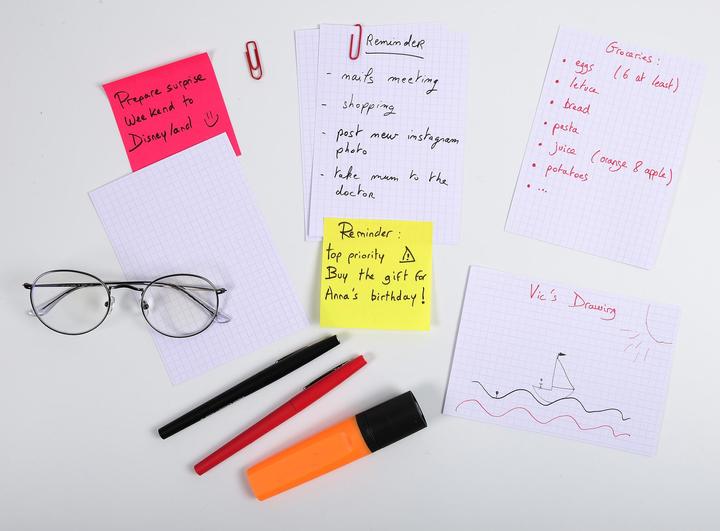 Prepare surprise
Weekend to
Disneyland
Reminder
- nails meeting
- shopping
- post new instagram
photo
- take mum to the
doctor
Reminder :
top priority
Buy the gift for
Anna's birthday !
Groceries :
• eggs (6 at least)
• letuce
• bread
• pasta
• juice (orange & apple)
• potatoes
• ...
Vic's Drawing